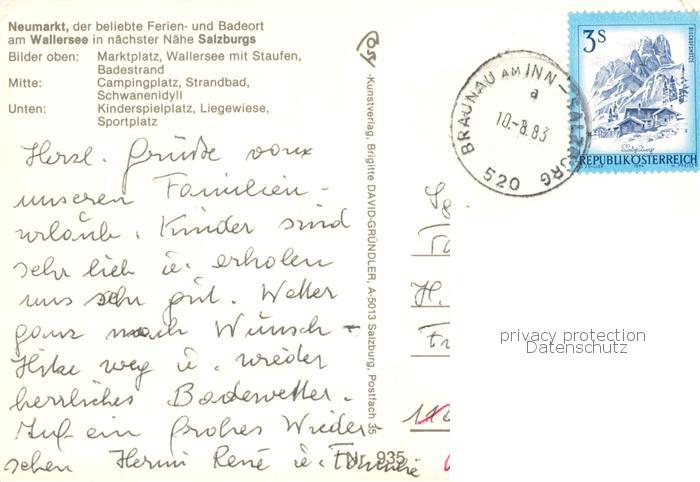 Neumarkt, der beliebte Ferien- und Badeort
am Wallersee in nächster Nähe Salzburgs
Bilder oben: Marktplatz, Wallersee mit Staufen,
Badestrand
Mitte: Campingplatz, Strandbad,
Schwanenidyll
Unten: Kinderspielplatz, Liegewiese,
Sportplatz
Herzl. Grüße vom
unseren Familien-
urlaub. Kinder sind
sehr lieb u. erholen
uns sehr gut. Wetter
ganz nach Wunsch -
Hitze weg u. wieder
herrliches Badewetter.
Auf ein frohes Wieder-
sehen Hermi René u. Familie
Nr. 935
-Kunstverlag, Brigitte DAVID-GRÜNDLER, A-5013 Salzburg, Postfach 35
BRAUNAU AM INN - SALZBURG
a
10.-8.83
520
3S
REPUBLIK ÖSTERREICH
H.
privacy protection
Datenschutz